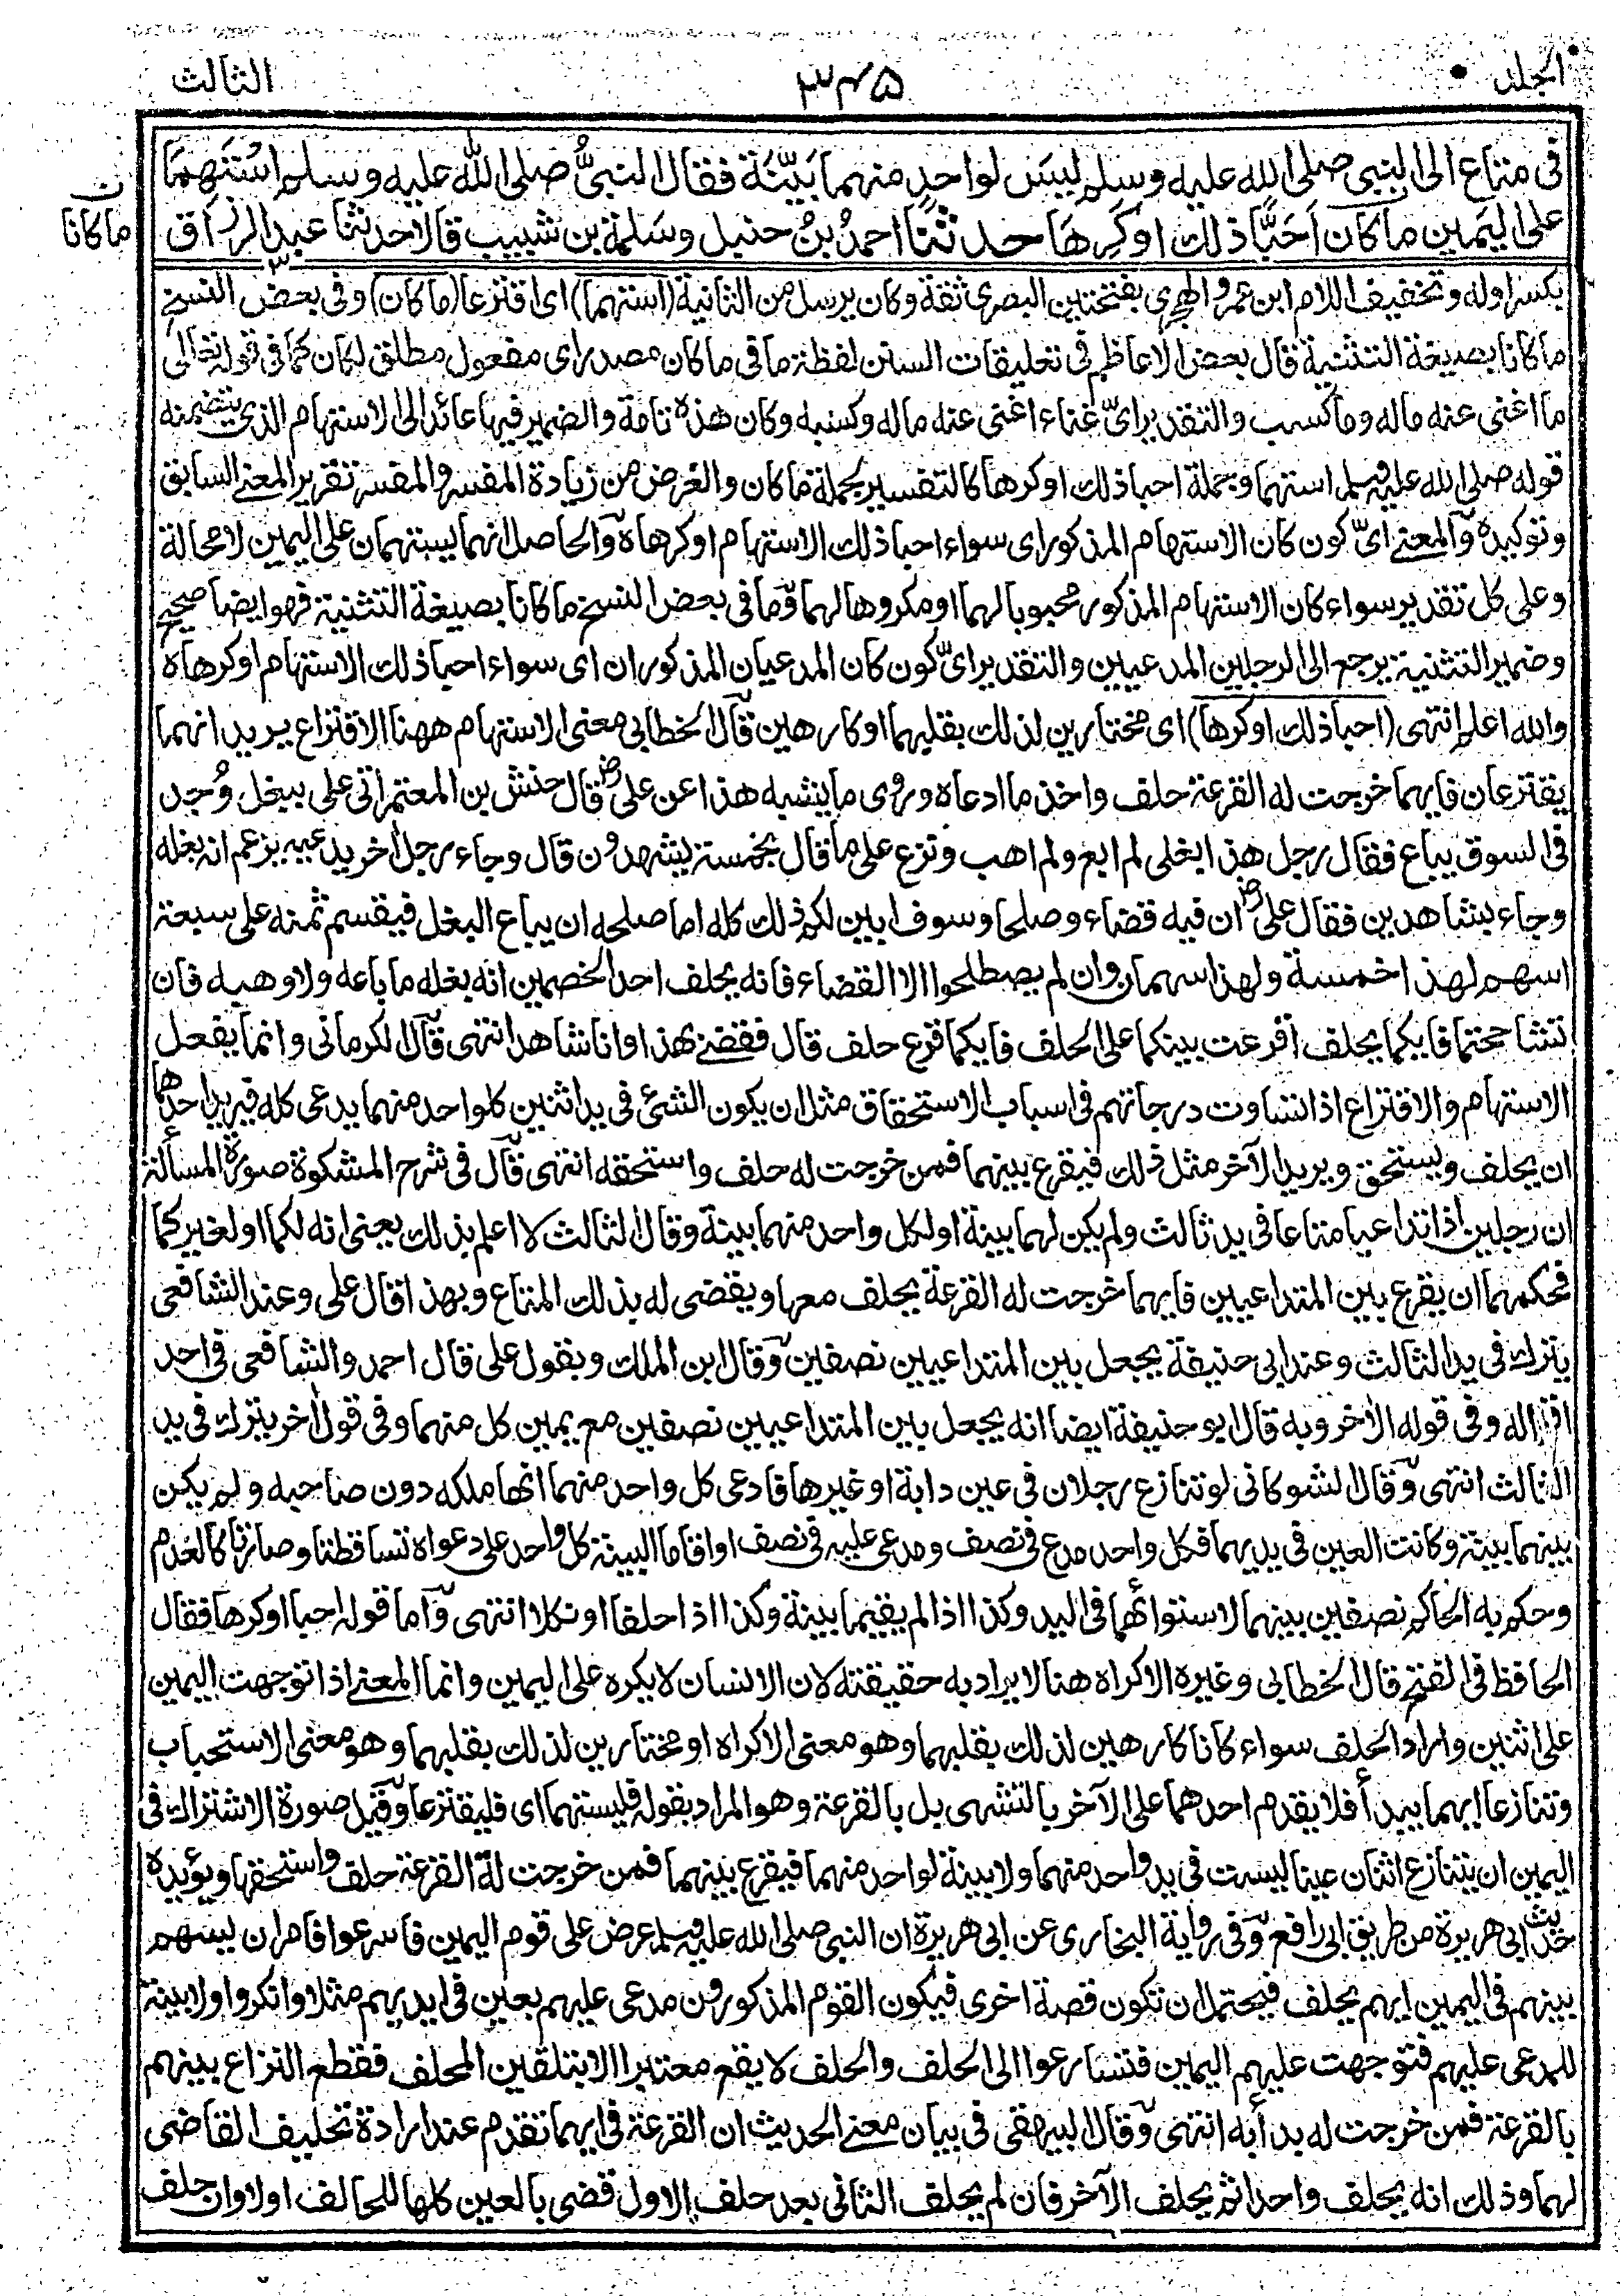 الجلد
٣٤٥
الثالث
فى متاع الى النبى صلى الله عليه وسلم ليس لواحد منهما بَيِّنَة فقال النبىُّ صلى الله عليه وسلم اسْتَهِمَا
على اليمين ما كان اَحَبَّا ذلك اوكَرِهَا حدثنا احمدُ بنُ حنبل وسَلمة بن شبيب قالا حدثنا عبد الرزاق
ن
ما كانا
بكسر اوله وتخفيف اللام ابن عمرو الهجرى بفتحتين البصرى ثقة وكان يرسل من الثانية (استهما) اى اقترعا (ما كان) وفى بعض النسخ
ما كانا بصيغة التثنية قال بعض الاعاظم فى تعليقات السنن لفظة ما فى ما كان مصدر اى مفعول مطلق لكان كما فى قوله تعالى
ما اغنى عنه ماله وما كسب والتقدير اىّ غناء اغنى عنه ماله وكسبه وكان هذه تامة والضمير فيها عائد الى الاستهام الذى يتضمنه
قوله صلى الله عليه وسلم استهما وجملة احبا ذلك اوكرها كالتفسير لجملة ما كان والغرض من زيادة المفسر والمفسر تقرير المعنى السابق
وتوكيده والمعنى اىّ كون كان الاستهام المذكور اى سواء احبا ذلك الاستهام اوكرهاه والحاصل انهما يستهمان على اليمين لا محالة
وعلى كل تقدير سواء كان الاستهام المذكور محبوبا لهما او مكروها لهما وما فى بعض النسخ ما كانا بصيغة التثنية فهو ايضا صحيح
وضمير التثنية يرجع الى الرجلين المدعيين والتقدير اىّ كون كان المدعيان المذكوران اى سواء احبا ذلك الاستهام اوكرهاه
والله اعلم انتهى (احبا ذلك اوكرها) اى مختارين لذلك بقلبهما او كارهين قال الخطابى معنى الاستهام ههنا الاقتراع يريد انهما
يقترعان فايهما خرجت له القرعة حلف واخذ ما ادعاه وروى ما يشبه هذا عن علىؓ قال حنش بن المعتمر اتى على ببغل وُجد
فى السوق يباع فقال رجل هذا بغلى لم ابع ولم اهب ونزع على ما قال بخمسة يشهدون قال وجاء رجل اخر يدعيه يزعم انه بغله
وجاء بشاهدين فقال علىؓ ان فيه قضاء وصلحا وسوف ابين لكم ذلك كله اما صلحه ان يباع البغل فيقسم ثمنه على سبعة
اسهم لهذا خمسة ولهذا سهمان وان لم يصطلحوا الا القضاء فانه يحلف احد الخصمين انه بغله ما باعه ولا وهبه فان
تشاححتما فايكما يحلف اقرعت بينكما على الحلف فايكما قرع حلف قال فقضى بهذا وانا شاهد انتهى قال الكرمانى وانما يفعل
الاستهام والاقتراع اذا تساوت درجاتهم فى اسباب الاستحقاق مثل ان يكون الشئ فى يد اثنين كل واحد منهما يدعى كله فيريد احدهما
ان يحلف ويستحق ويريد الآخر مثل ذلك فيقرع بينهما فمن خرجت له حلف واستحقه انتهى قال فى شرح المشكوة صورة المسألة
ان رجلين اذا تداعيا متاعا فى يد ثالث ولم يكن لهما بينة او لكل واحد منهما بينة وقال الثالث لا اعلم بذلك يعنى انه لكما او لغيركما
فحكمهما ان يقرع بين المتداعيين فايهما خرجت له القرعة يحلف معها ويقضى له بذلك المتاع وبهذا قال على وعند الشافعى
يترك فى يد الثالث وعند ابى حنيفة يجعل بين المتداعيين نصفين وقال ابن الملك وبقول على قال احمد والشافعى فى احد
اقواله وفى قوله الآخر وبه قال ابو حنيفة ايضا انه يجعل بين المتداعيين نصفين مع يمين كل منهما وفى قول اخر يترك فى يد
الثالث انتهى وقال الشوكانى لو تنازع رجلان فى عين دابة او غيرها فادعى كل واحد منهما انها ملكه دون صاحبه ولم يكن
بينهما بينة وكانت العين فى يديهما فكل واحد مدع فى نصف ومدعى عليه فى نصف او اقاما البينة كل واحد على دعواه تساقطتا وصارتا كالعدم
وحكم به الحاكم نصفين بينهما لاستوائهما فى اليد وكذا اذا لم يقيما بينة وكذا اذا حلفا او نكلا انتهى واما قوله احبا اوكرها فقال
الحافظ فى الفتح قال الخطابى وغيره الاكراه هنا لا يراد به حقيقته لان الانسان لا يكره على اليمين وانما المعنى اذا توجهت اليمين
على اثنين واراد الحلف سواء كانا كارهين لذلك بقلبهما وهو معنى الاكراه او مختارين لذلك بقلبهما وهو معنى الاستحباب
وتنازعا ايهما يبدأ فلا يقدم احدهما على الآخر بالتشهى بل بالقرعة وهو المراد بقوله فليستهما اى فليقترعا وقيل صورة الاشتراك فى
اليمين ان يتنازع اثنان عينا ليست فى يد واحد منهما ولا بينة لواحد منهما فيقرع بينهما فمن خرجت له القرعة حلف واستحقها ويؤيده
حديث ابى هريرة من طريق ابى رافع وفى رواية البخارى عن ابى هريرة ان النبى صلى الله عليه وسلم عرض على قوم اليمين فاسرعوا فامر ان يسهم
بينهم فى اليمين ايهم يحلف فيحتمل ان تكون قصة اخرى فيكون القوم المذكورون مدعى عليهم بعين فى ايديهم مثلا وانكروا ولا بينة
للمدعى عليهم فتوجهت عليهم اليمين فتسارعوا الى الحلف والحلف لا يقع معتبرا الا بتلقين المحلف فقطع النزاع بينهم
بالقرعة فمن خرجت له بدأ به انتهى وقال البيهقى فى بيان معنى الحديث ان القرعة فى ايهما تقدم عند ارادة تحليف القاضى
لهما وذلك انه يحلف واحدا ثم يحلف الآخر فان لم يحلف الثانى بعد حلف الاول قضى بالعين كلها للحالف اولا وان حلف